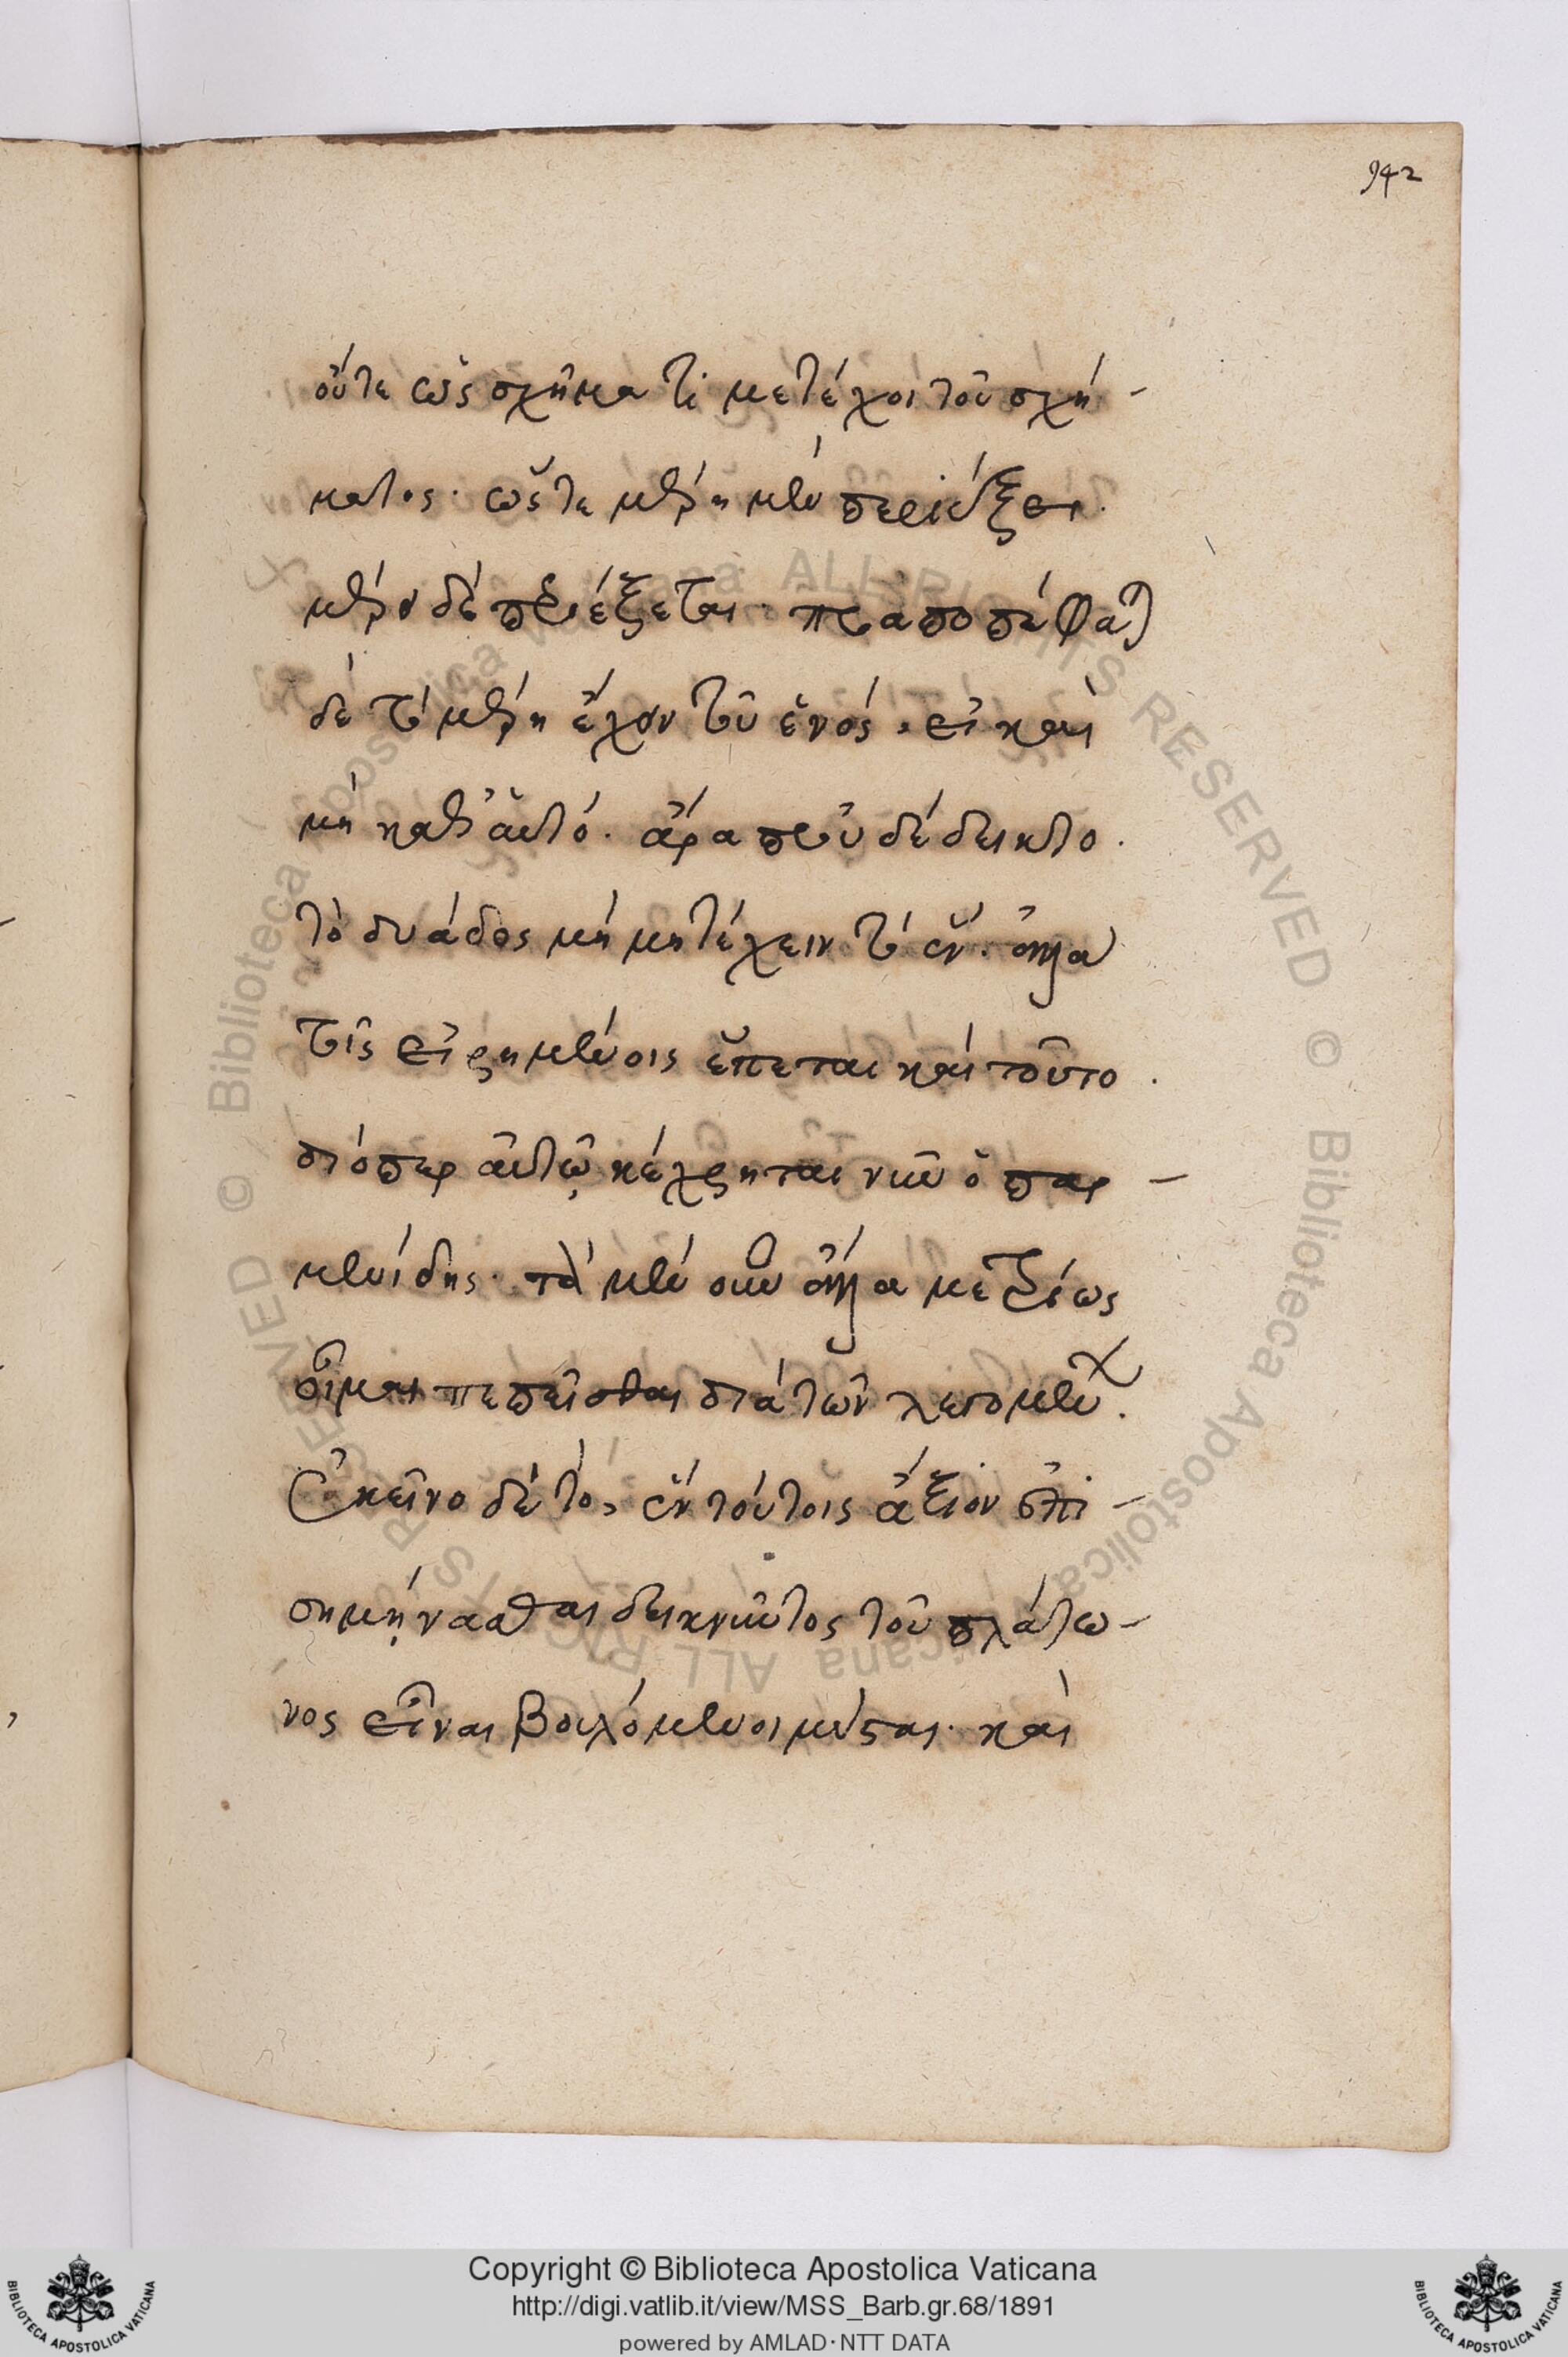 942
οὔτε ὡς σχῆμά τι μετέχοι τοῦ σχή-
ματος· ὥστε μέρη μὲν περιέξει·
μέρη δὲ περιέξεται· προαποπέφαται
δὲ τὸ μέρη ἔχον τοῦ ἑνός, εἰ καὶ
μὴ κατ' αὐτό· ἄρα που δέδεικτο·
τὸ δυάδος μὴ μετέχειν τὸ ἕν· ἀλλὰ
τοῖς εἰρημένοις ἕπεται καὶ τοῦτο·
διόπερ αὐτῷ κέχρηται νῦν ὁ παρ-
μενίδης· τὰ μὲν οὖν ἄλλα μετρίως
οἶμαι πεπεῖσθαι διὰ τῶν λεγομένων.
Ἐκεῖνο δὲ τὸ, ἐν τούτοις ἄξιον ἐπι-
σημήνασθαι δεικνῦντος τοῦ πλάτω-
νος εἶναι βουλόμενοι μέσται· καὶ
© Biblioteca Apostolica Vaticana ALL RIGHTS RESERVED © Biblioteca Apostolica Vaticana ALL RIGHTS RESERVED
Copyright © Biblioteca Apostolica Vaticana
http://digi.vatlib.it/view/MSS_Barb.gr.68/1891
powered by AMLAD·NTT DATA
BIBLIOTECA APOSTOLICA VATICANA
BIBLIOTECA APOSTOLICA VATICANA